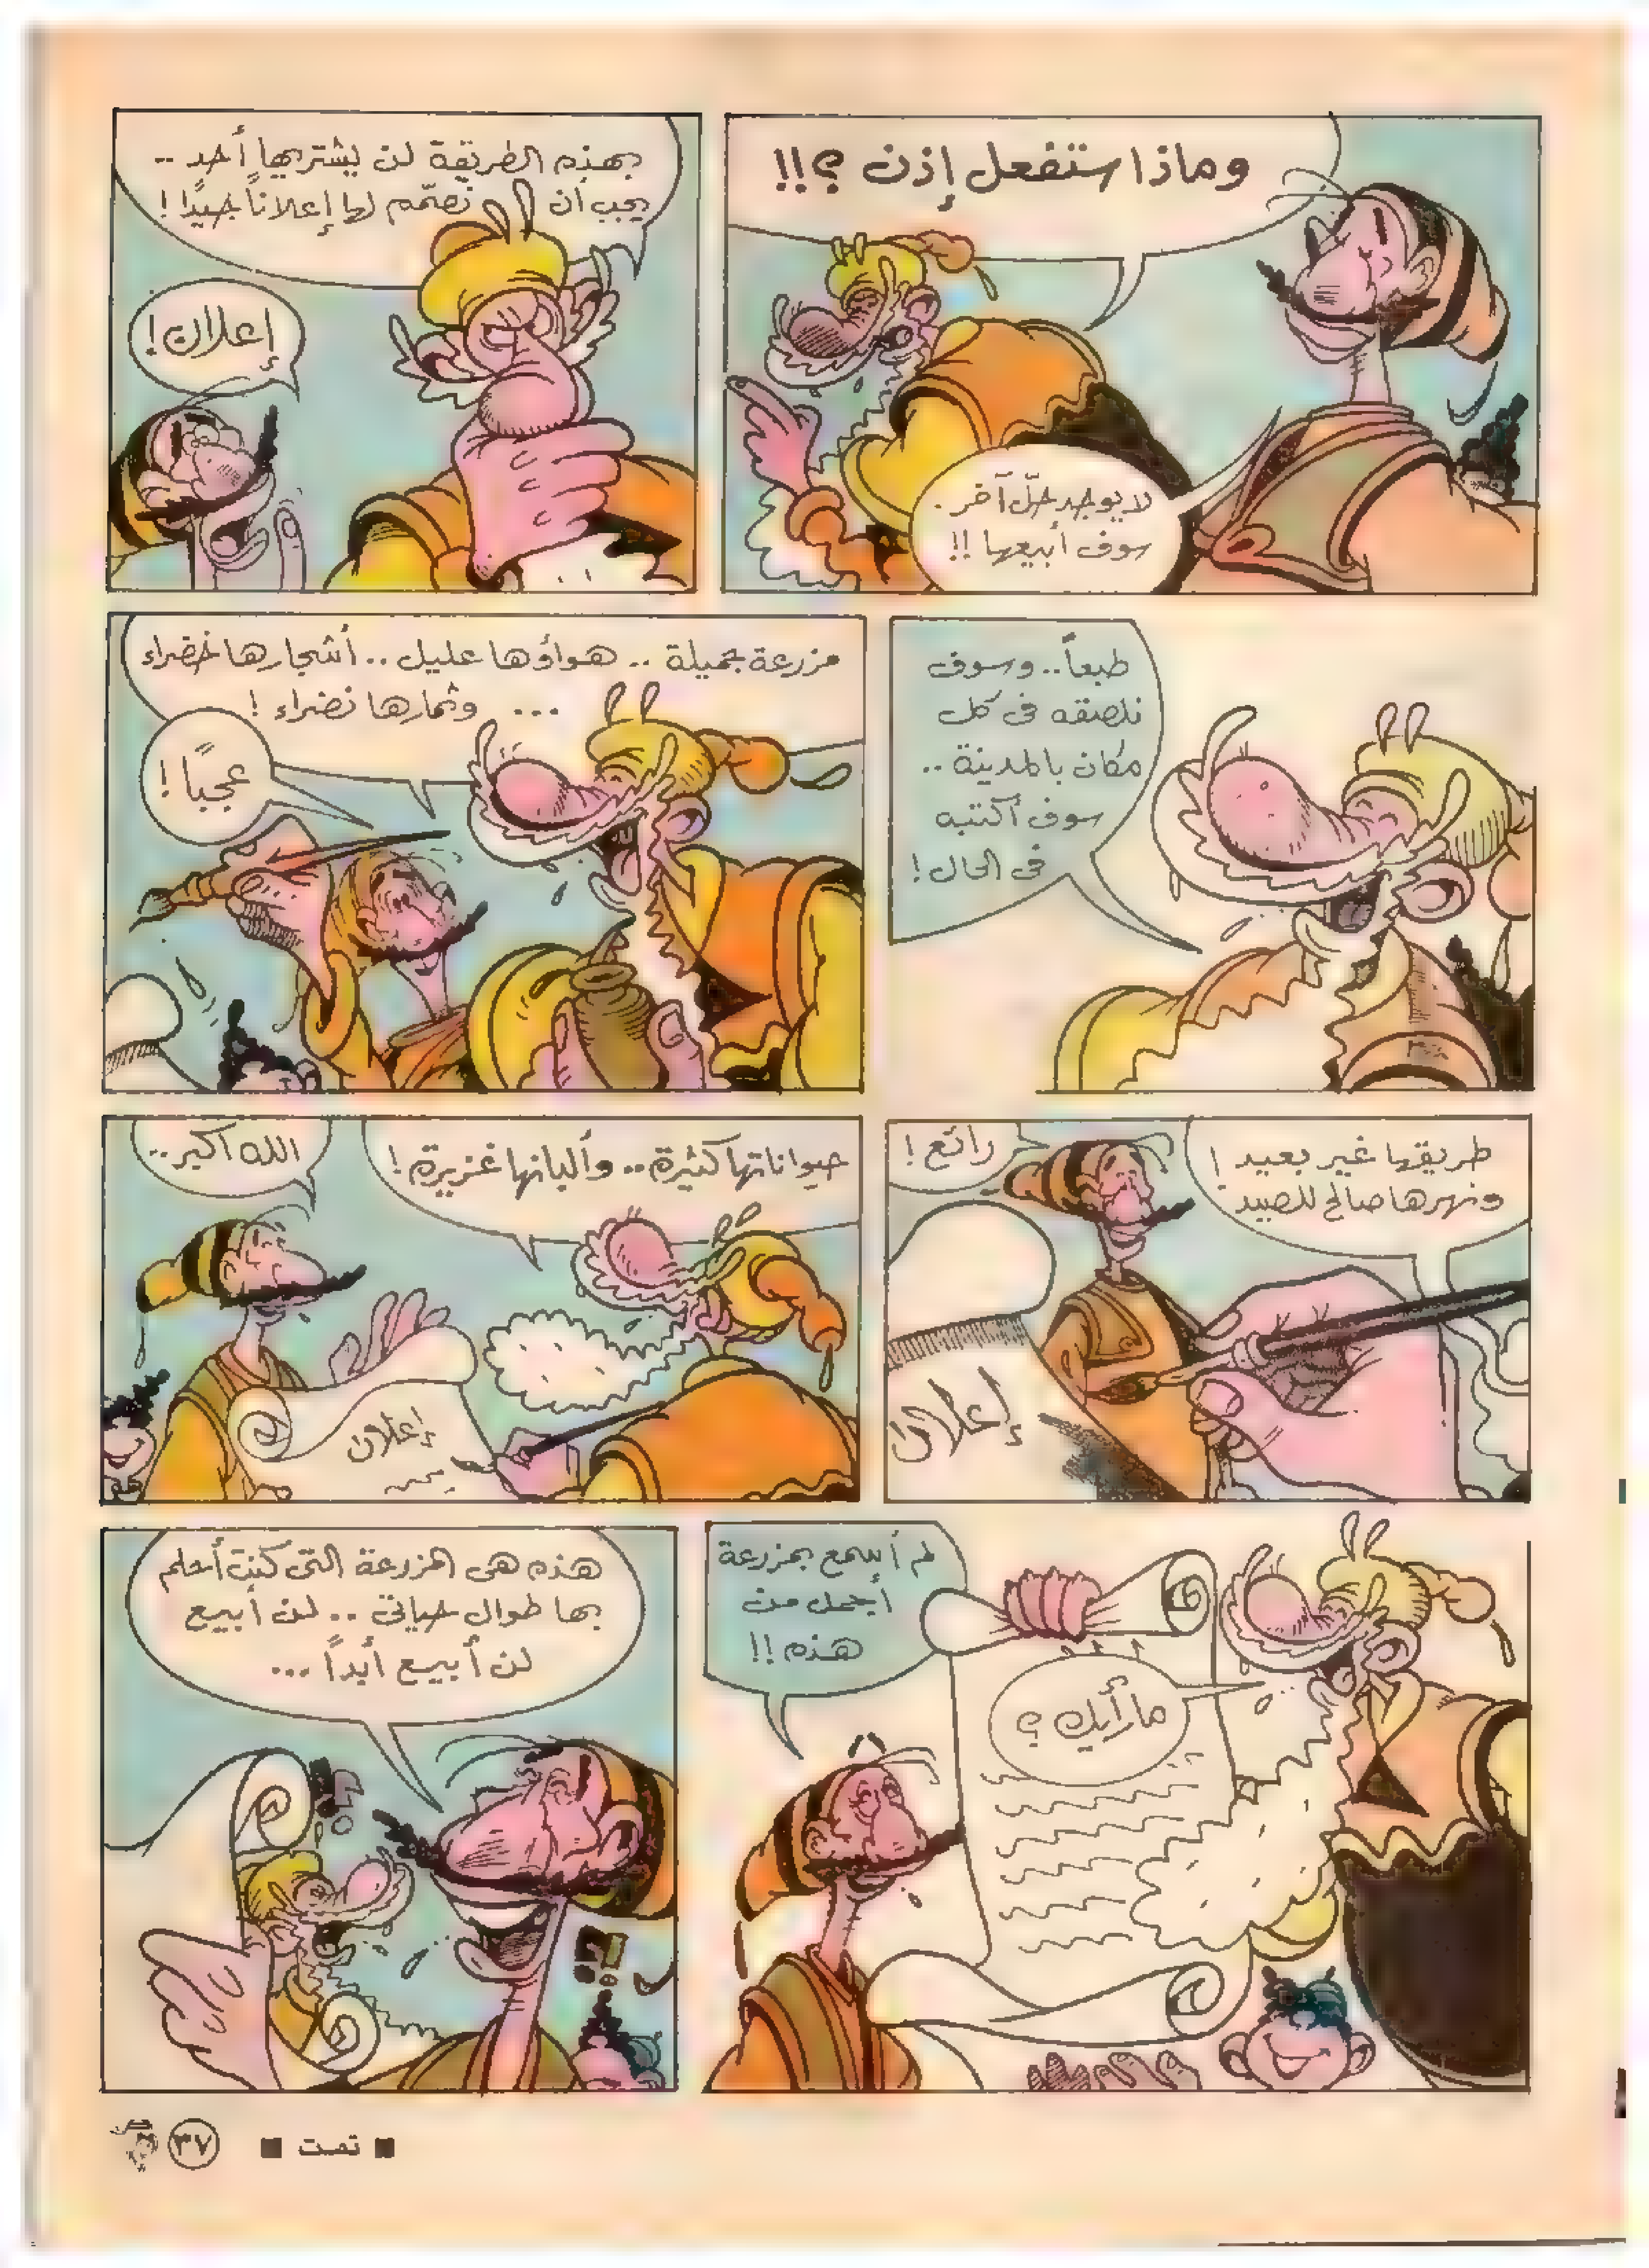 وماذا ستفعل إذن ؟!!
لا يوجد حلّ آخر .
سوف أبيعها !!
بهذه الطريقة لن يشتريها أحد ..
يجب أن نصمّم لها إعلاناً جيدًا !
إعلان !
طبعاً .. وسوف
نلصقه فى كل
مكان بالمدينة ..
سوف أكتبه
فى الحال !
مزرعة جميلة .. هواؤها عليل .. أشجارها خضراء
وثمارها نضراء ! ...
عجبًا !
طريقها غير بعيد !
ونهرها صالح للصيد
رائع !
إعلان
حيواناتها كثيرة .. وألبانها غزيرة !
الله أكبر ..
إعلان
ما رأيك ؟
لم أسمع بمزرعة
أجمل من
هذه !!
هذه هى المزرعة التى كنت أحلم
بها طوال حياتى .. لن أبيع
لن أبيع أبداً ...
!؟
؟!
■ تمت ■
٣٧